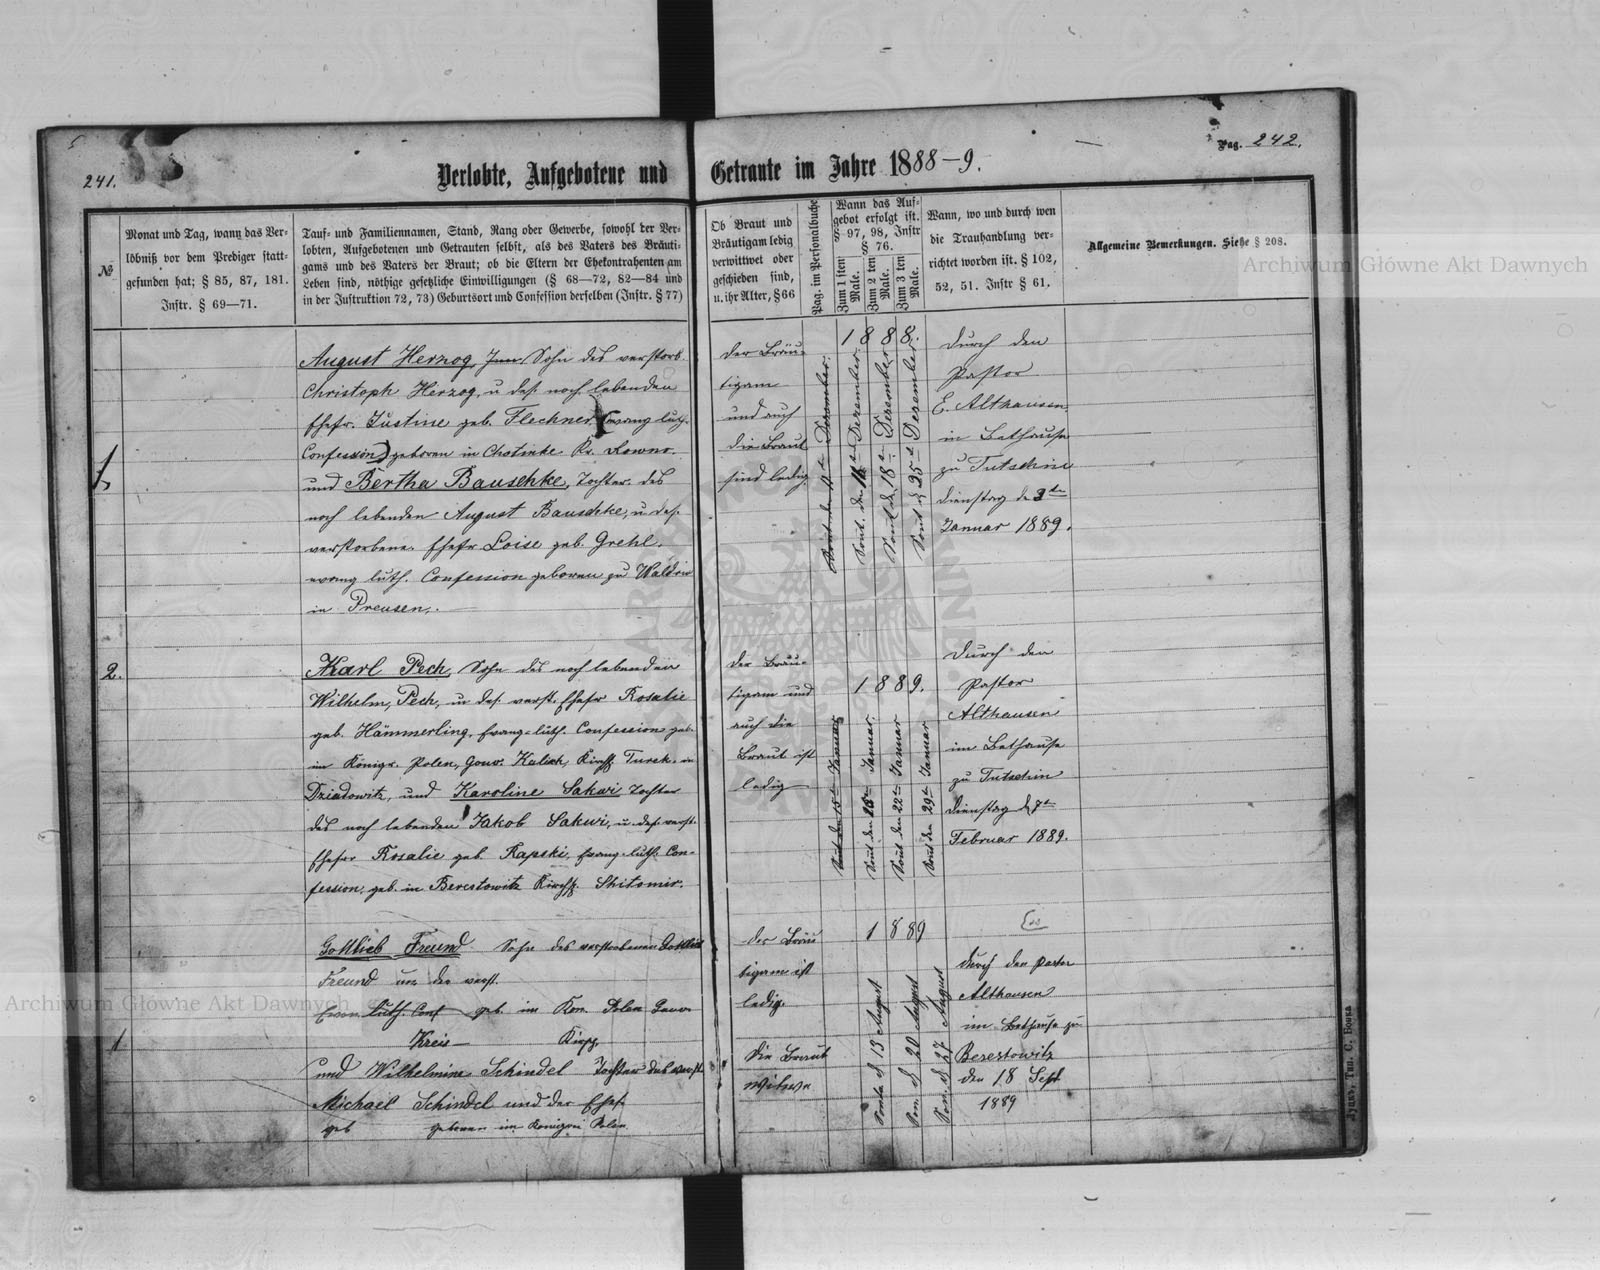 241.
Verlobte, Aufgebotene und Getraute im Jahre 1888-9.
Pag. 242.
№
Monat und Tag, wann das Ver-
löbniß vor dem Prediger statt-
gefunden hat; § 85, 87, 181.
Instr. § 69—71.
Tauf- und Familiennamen, Stand, Rang oder Gewerbe, sowohl der Ver-
lobten, Aufgebotenen und Getrauten selbst, als des Vaters des Bräuti-
gams und des Vaters der Braut; ob die Eltern der Ehekontrahenten am
Leben sind, nöthige gesetzliche Einwilligungen (§ 68—72, 82—84 und
in der Instruktion 72, 73) Geburtsort und Confession derselben (Instr. § 77)
Ob Braut und
Bräutigam ledig
verwittwet oder
geschieden sind,
u. ihr Alter, § 66
Pag. im Personalbuche
Wann das Auf-
gebot erfolgt ist.
§ 97, 98, Instr
§ 76.
Zum 1 sten
Male.
Zum 2 ten
Male.
Zum 3 ten
Male.
Wann, wo und durch wen
die Trauhandlung ver-
richtet worden ist. § 102,
52, 51. Instr § 61.
Allgemeine Bemerkungen. Siehe § 208.
Archiwum Główne Akt Dawnych
1.
August Herzog, Sohn des verstorb.
Christoph Herzog, u des. noch lebenden
Ehefr. Justine geb. Flechner. (evang luth.
Confession) geboren in Chotinke Kr. Rowno.
und Bertha Bauschke, Tochter des
noch lebenden August Bauschke, u. des.
verstorbene Ehefr Loise geb. Grehl.
evang luth. Confession geboren zu
in Preusen.
der Bräu-
tigam
und auch
die Braut
sind ledig.
1888.
Sont. den Dezember.
Dezember.
Sont. d. 18ten Dezember
Sont d. 25ten Dezember
Durch den
Pastor
E. Althausen.
in Bethause
zu Tutschin
Dienstag d. 3ten
Januar 1889.
2.
Karl Pech, Sohn des noch lebenden
Wilhelm Pech, u. des. verst. Ehefr Rosalie
geb. Hämmerling, Evang-luth. Confession geb.
im Königr. Polen, Gouv. Kalisch, Kirchsp. Turek. in
Dziadowitz, und Karoline Sakwi Tochter
des noch lebenden Jakob Sakwi, u. des. verst.
Ehefr Rosalie geb. Rapski, Evang-luth. Con-
fession, geb. in Berestowitz Kirchsp. Shitomir.
der Bräu-
tigam und
auch die
Braut ist
ledig
1889.
Sont den 15ten Januar
Sont den Januar.
Sont den 22ten Januar
Sont den 29ten Januar
Durch den
Pastor
Althausen
im Bethause
zu Tutschin
Dienstag d. 7ten
Februar 1889.
1
Gottlieb Freund Sohn des verstorbenen Gottlieb
Freund und der verst.
Evan. Luth. Conf geb. im Kön. Polen Gouv
Kreis Kirsp.
und Wilhelmine Schindel Tochter des verst.
Michael Schindel und der Ehefr
geb geboren im Königrei Polen.
der Bräu
tigam ist
ledig.
Die Braut
witwe
1889
d 13 August
Son. d 20 August
Son. d 27 August
durch den Pastor
Althausen
im Bethause zu
Berestowitz
den 18 Sept
1889
Archiwum Główne Akt Dawnych